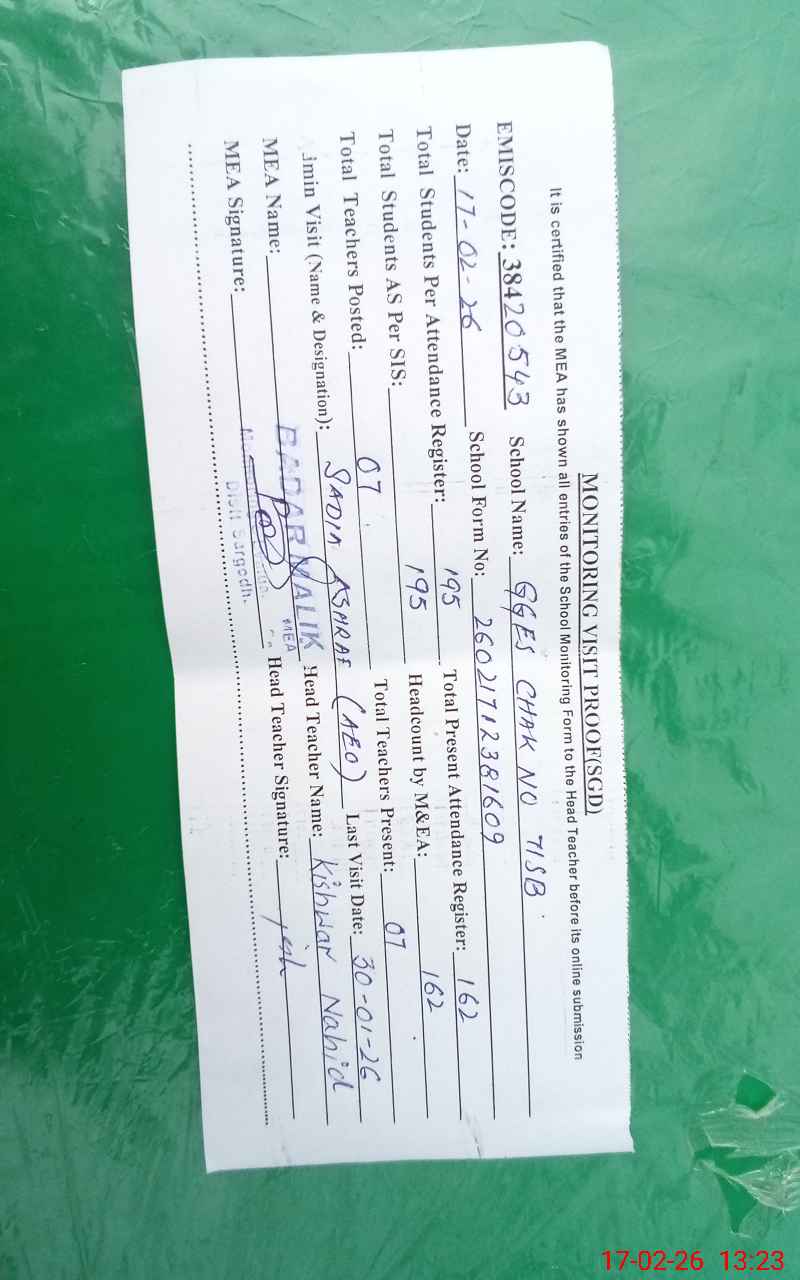 MONITORING VISIT PROOF(SGD)
It is certified that the MEA has shown all entries of the School Monitoring Form to the Head Teacher before its online submission
EMISCODE: 38420543 School Name: GGES CHAK NO 71SB
Date: 17-02-26 School Form No: 26021712381609
Total Students Per Attendance Register: 195 Total Present Attendance Register: 162
Total Students AS Per SIS: 195 Headcount by M&EA: 162
Total Teachers Posted: 07 Total Teachers Present: 07
dmin Visit (Name & Designation): SADIA ASHRAF (AEO) Last Visit Date: 30-01-26
MEA Name: BADAR MALIK MEA Head Teacher Name: Kishwar Nahid
MEA Signature: Head Teacher Signature:
Distt Sargodh.
17-02-26 13:23